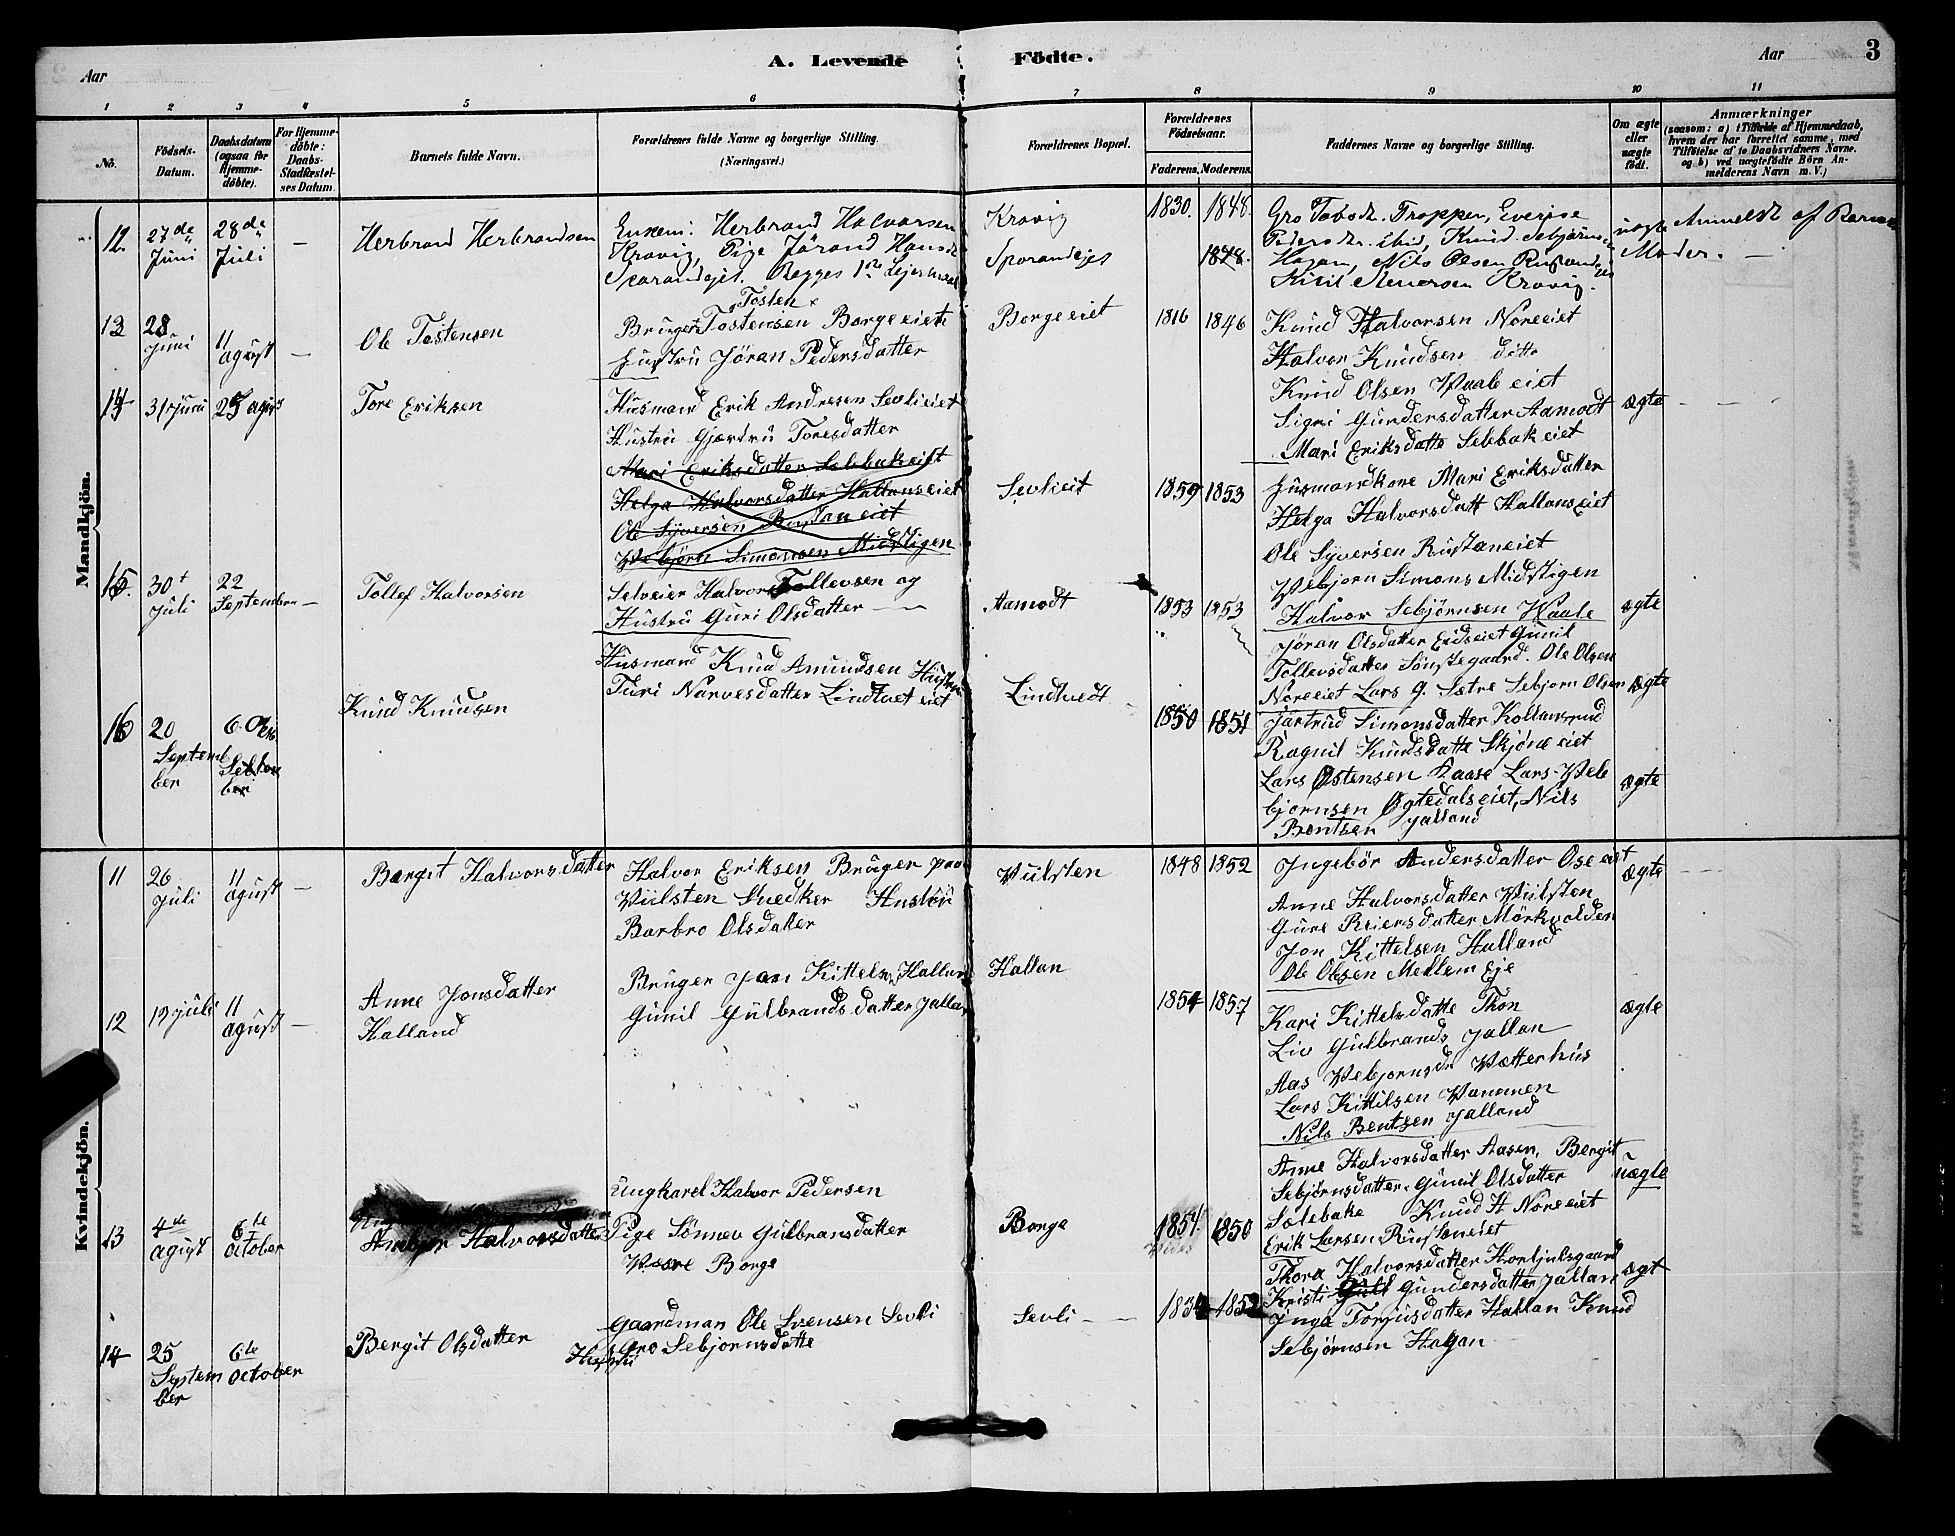 Aar
A. Levende Födte.
Aar
3
1 2 3 4 5 6 7 8 9 10 11
No.
Födsels-Datum.
Daabsdatum (ogsaa for Hjemme-döbte).
For Hjemme-döbte: Daabs-Stadfæstel-ses Datum.
Barnets fulde Navn.
Forældrenes fulde Navne og borgerlige Stilling.
(Næringsvei.)
Forældrenes Bopæl.
Forældrenes Födselsaar.
Faderens. Moderens.
Faddernes Navne og borgerlige Stilling.
Om ægte eller uægte födt.
Anmærkninger
(saasom: a) i Tilfælde af Hjemmedaab,
hvem der har forrettet samme, med
Tilföielse af to Daabsvidners Navne.
og b) ved uægtefödte Börn An-
melderens Navn m. V.)
Mandkjön.
12.
27de Juni
28de Juli
—
Herbrand Herbrandsen
Enkem. Herbrand Halvorsen
Kravig, Pige Jörand Hansd.
Sporandejet. Begges 1ste Lejermaal
Kravig
Sporandejet
1830. 1848.
1848.
Gro Tabodr. Troppen,
Pedersdr. ibid, Knud Sebjörns
Hagan, Nils Olsen
Kittil Kravig.
uægte
Anmeldt af Barnets
Moder. —
13
28 Juni
11 agust
—
Ole Tostensen
Tosten
Bruger Tostensen Borgeeiet
Hustru Jöran Pedersdatter
Borgeeiet
1816 1846
Knud Halvorsen Noreeiet
Halvor Knudsen ditto
Knud Olsen Waaleeiet
Sigri Gundersdatter Aamodt
Mari Eriksdatte Selebakeiet
ægte
14
31 juni
25 agust
Tore Eriksen
Husmand Erik Andresen Sevlieiet
Hustru Gjærtru Toresdatter
Mari Eriksdatter Selebakeiet
Helga Halvorsdatter Hallanseiet
Ole Syversen
Webjörn Simonsen Midstigen
Sevlieit
1859 1853
Husmandkone Mari Eriksdatter
Helga Halvorsdatt Hallanseiet
Ole Syversen Rustaneiet
Webjorn Simons Midstigen
15.
30t juli
22 September
—
Tollef Halvorsen
Selveier Halvor Tollevsen og
Hustru Guri Olsdatter
Aamodt
1853 1853
Halvor Sebjörnsen Waale
Jöran Olsdatter Eidseiet Gunil
Tollevsdatter Sönstegaard. Ole Olsen
Noreeiet Lars G. Sætre Sebjorn Olsen
ægte
ægte
16
20 September
6. Okto
Knud Knudsen
Husmand Knud Amundsen Hustru
Turi Narvesdatter Lindtvet eiet
Lindtvedt
1850 1851
Järtrud Simonsdatter Kollansrud
Ragnil Knudsdatte Skjöneeiet
Lars Östensen Kaase Lars Web
bjornsen Ögtedalseiet, Nils
Bentsen jalland
ægte
Kvindekjön.
11
26 juli
11 agust
—
Bergit Halvorsdatter
Halvor Eriksen Bruger paa
Wülsten Snedker Hustru
Barbro Olsdatter
Wülsten
1848 1852
Ingebör Andersdatter Oseeiet
Anne Halvorsdatter Wülsten
Gure Reiersdatter Mörkvolden
Jon Kittelsen Halland
Ole Olsen Mellem Eje
ægte
12
19 juli
11 agust
—
Anne Jonsdatter
Halland
Bruger Jon Kittels. Hallan
Gunil Gülbrandsdatter jallan
Hallan
1854 1857
Kari Kittelsdatte Thon
Liv Gulbrands jallan
Aas Webjornsdr Wætterhus
Lars Kittilsen Wammen
Nils Bentsen jalland
ægte
13
4de agust
6te October
Ambjor Halvorsdatter
Ungkarl Halvor Pedersen
Pige Sönnev Gulbransdatter
Borge
Borge
1854. 1850
Anne Halvorsdatter Aasen, Bergit
Sebjörnsdatter. Gunil Olsdatter
Solebake Knud H Noreeiet
Erik Larsen Rustaneiet
uægte
14
25 September
6te October
Bergit Olsdatter
Gaardman Ole Svensen Sevli
Hustru Gro Sebjornsdatte
Sevli
1834 1852
Thora Halvorsdatter
Kristi Gundersdatter jallan
Inga Torjusdatter Hallan Knud
Sebjörnsen Hagan
ægt